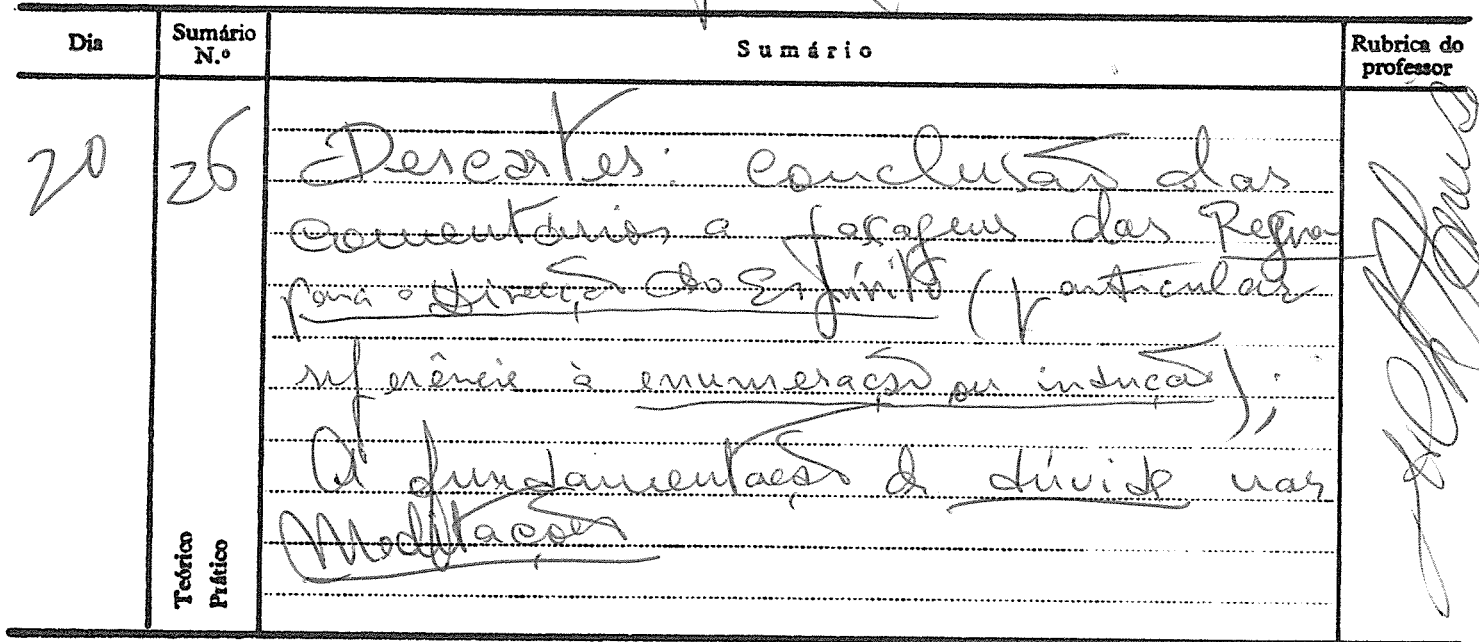 Dia Sumário N.º Sumário Rubrica do professor
20 26 Descartes: conclusão dos
comentários a passagens das Regras
para a Direcção do Espírito (particular
referência à enumeração ou indução);
A fundamentação da dúvida nas
Meditações
Teórico
Prático